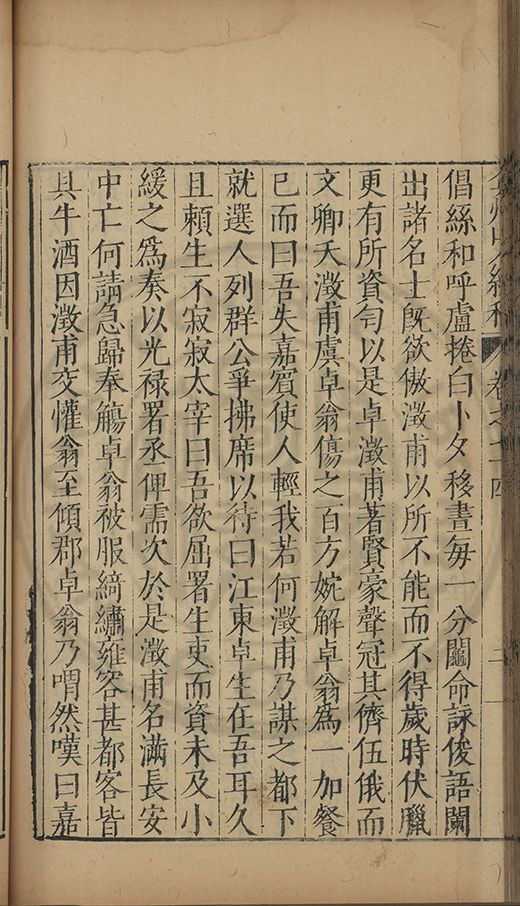 倡絲和呼盧捲白卜夕移晝每一分鬮命詠俊語闌
出諸名士旣欲傲澂甫以所不能而不得歲時伏臘
更有所資匄以是卓澂甫著賢豪聲冠其儕伍俄而
文卿夭澂甫虞卓翁傷之百方婉解卓翁爲一加餐
已而曰吾失嘉賓使人輕我若何澂甫乃謀之都下
就選人列群公爭拂席以待曰江東卓生在吾耳久
且賴生不寂寂太宰曰吾欲屈署生吏而資未及小
緩之爲奏以光禄署丞俾需次於是澂甫名滿長安
中亡何請急歸奉觴卓翁被服綺繡雍容甚都客皆
具牛酒因澂甫交懽翁至傾郡卓翁乃喟然嘆曰嘉
卷之